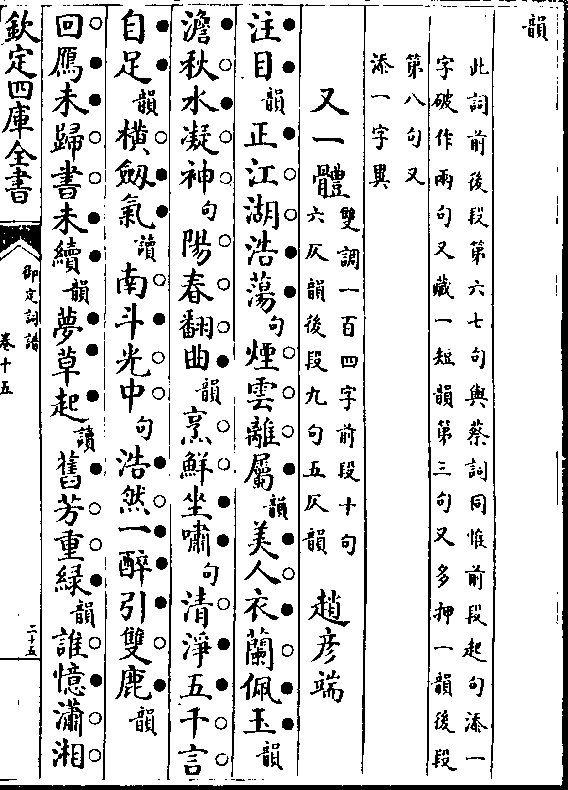 韻
此詞前後段第六七句與蔡詞同惟前段起句添一
字破作兩句又藏一短韻第三句又多押一韻後段
第八句又
添一字異
又一體雙調一百四字前段十句
六仄韻後段九句五仄韻 趙彥端
注目韻正江湖浩蕩句煙雲離屬韻美人衣蘭佩玉韻
澹秋水凝神句陽春翻曲韻烹鮮坐嘯句清淨五千言
自足韻橫劔氣讀南斗光中句浩然一醉引雙鹿韻
回鴈未歸書未續韻夢草起讀舊芳重綠韻誰憶瀟湘
欽定四庫全書
御定詞譜
卷十五
二十五